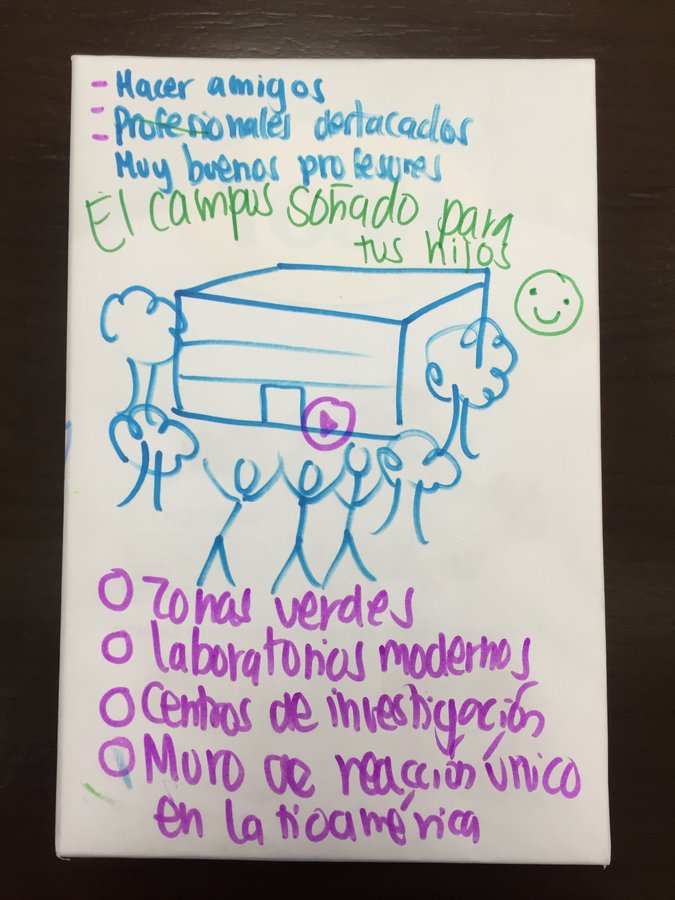 - Hacer amigos
- Profesionales destacados
- Muy buenos profesores
El campus soñado para
tus hijos
Zonas verdes
laboratorios modernos
Centros de investigación
Muro de reacción único
en Latioamérica